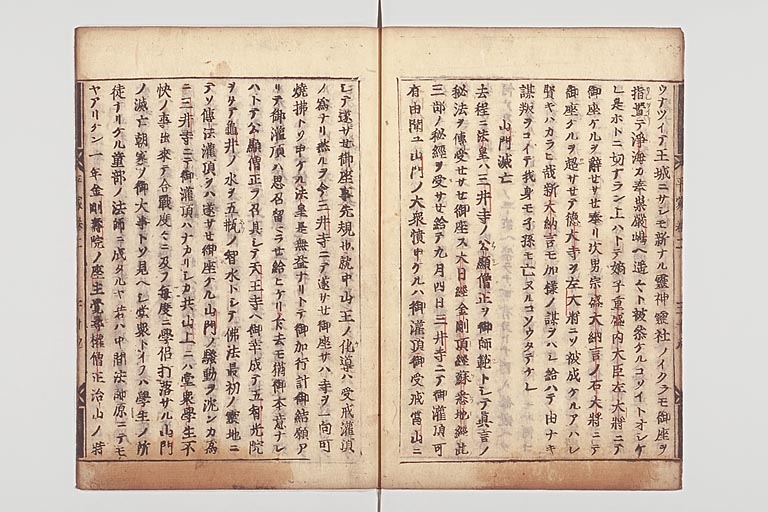 ツナツイテ王城ニサシモ新ナル靈神靈社ノイクラモ御座ヲ
指置テ淨海カ奉崇嚴嶋ヘ遥々ト被參ケルコソイトオシケ
レ是ホトニ切ナラン上ハトテ嫡子重盛内大臣左大將ニテ
御座ケルヲ辭セサセ奉リ次男宗盛大納言ノ右大將ニテ
御座ケルヲ超サセテ德大寺ヲ左大將ニソ被成ケルアハレ
賢キハカラヒ哉新大納言モ加樣ノ謀ヲハシ給ハテ由ナキ
謀叛ヲコシテ我身モ子孫モ亡ヌルコソウタテケレ
山門滅亡
去程ニ法皇ハ三井寺ノ公顯僧正ヲ御師範トシテ眞言ノ
秘法ヲ傳受セサセ御座ス大日經金剛頂經蘇悉地經此
三部ノ秘經ヲ受サセ給テ九月四日三井寺ニテ御灌頂可
有由聞ユ山門ノ大衆憤申ケルハ御灌頂御受戒當山ニ
シテ遂サセ御座事先規也就中山王ノ化導ハ受戒灌頂
ノ爲ナリ然ルヲ今三井寺ニテ遂サセ御座サハ寺ヲ一向可
燒拂トソ申ケル法皇是無益ナリトテ御加行計御結願ア
リテ御灌頂ハ思召留ラセ給ヒケリ去モ猶御本意ナレ
ハトテ公顯僧正ヲ召具シテ天王寺ヘ御幸成テ五智光院
ヲ立テ龜井ノ水ヲ五瓶ノ智水トシテ佛法最初ノ靈地ニ
テソ傳法灌頂ヲハ遂サセ御座ケル山門ノ騷動ヲ沈ンカ爲
ニ三井寺ニテ御灌頂ハナカリシカ共山上ニハ堂衆學生不
快ノ事出來テ合戰度々ニ及フ毎度ニ學侶打落サル山門
ノ滅亡朝家ノ御大事トソ見ヘシ堂衆トイフハ學生ノ所
從ナリケル童部ノ法師ニ成タルヤ若ハ中間法師原ニテモ
ヤアリケン一年金剛壽院ノ座主覺尋權僧正治山ノ時